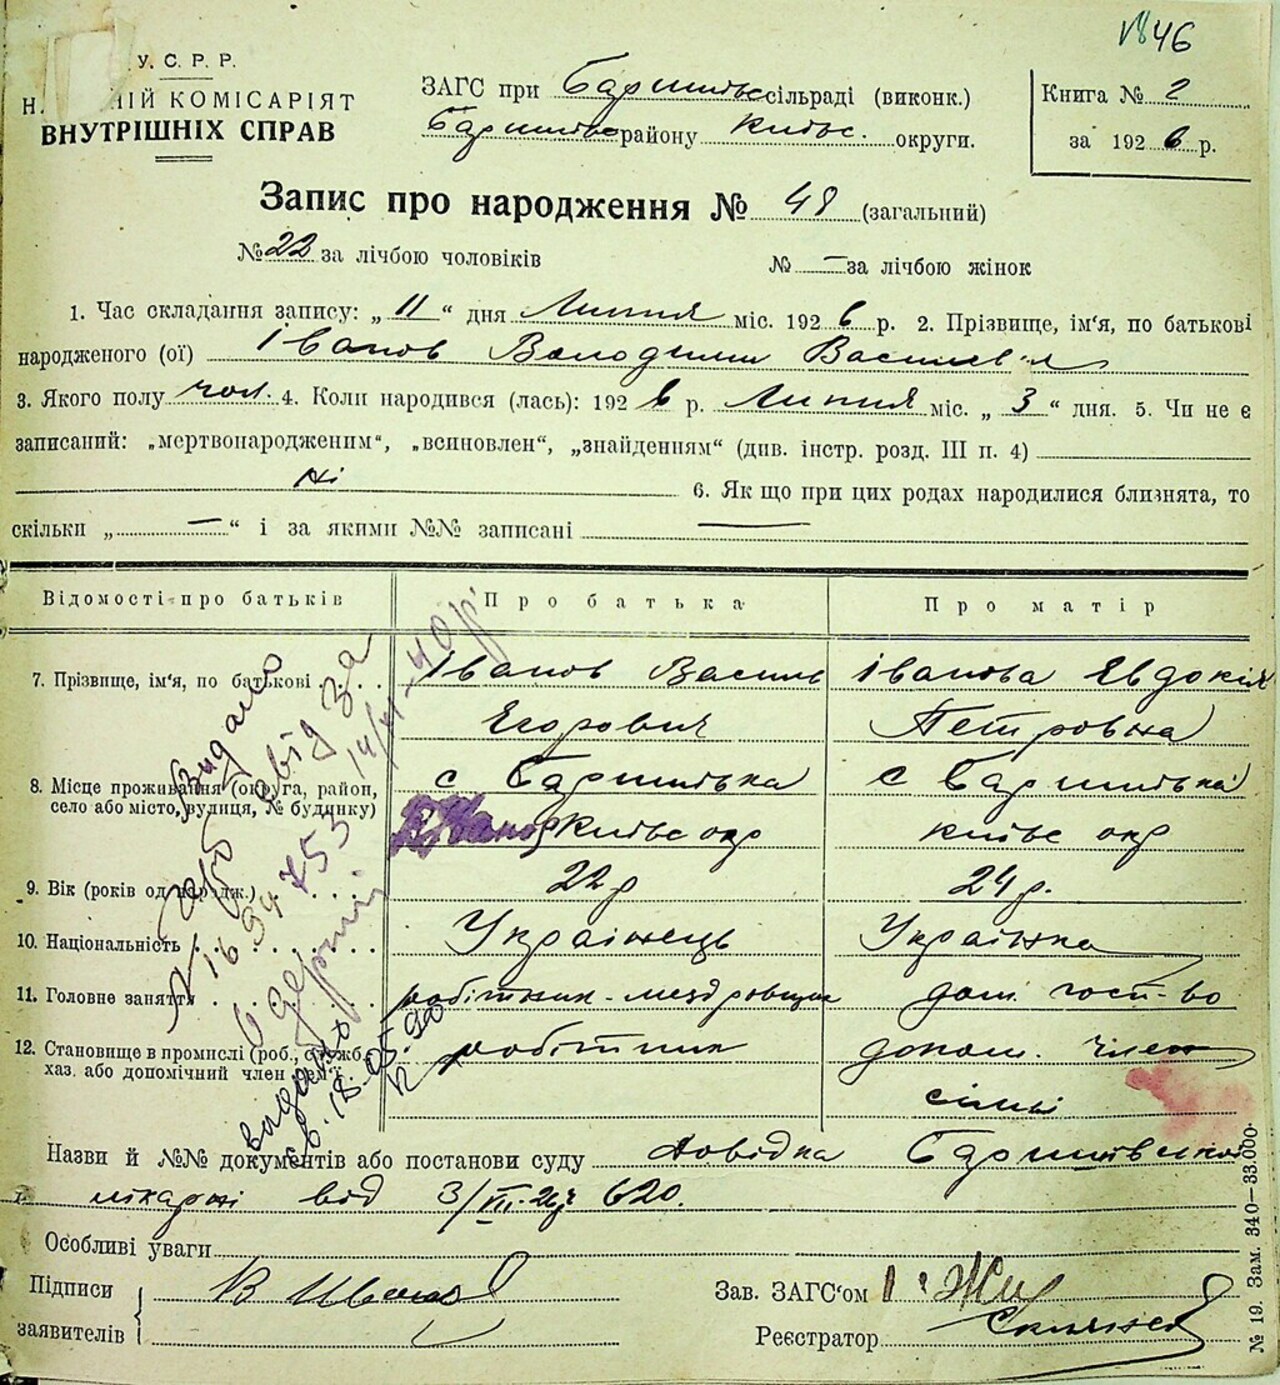 46
У. С. Р. Р.
ВНУТРІШНІХ СПРАВ
КОМІСАРІЯТ
ЗАГС при Баришівс сільраді (виконк.)
Баришівс району Київс. округи.
Книга № 2
за 1926 р.
Запис про народження № 48 (загальний)
№ 22 за лічбою чоловіків № — за лічбою жінок
1. Час складання запису: „ 11 “ дня Липня міс. 1926 р. 2. Прізвище, ім‘я, по батькові
народженого (ої) Іванов Володимир
3. Якого полу чол. 4. Коли народився (лась): 1926 р. Липня міс. „ 3 “ дня. 5. Чи не є
записаний: „мертвонародженим“, „всиновлен“, „знайденням“ (див. інстр. розд. III п. 4)
Ні 6. Як що при цих родах народилися близнята, то
скільки „ — “ і за якими №№ записані —
Відомості про батьків Про батька Про матір
7. Прізвище, ім‘я, по батькові Іванов Василь Іванова Евдокія
Егорович Петровна
8. Місце проживання (округа, район, с Баришівка с Баришівка
село або місто, вулиця, № будинку) Київс окр Київс окр
9. Вік (років од народж.) 22 р 24 р.
10. Національність Українець Українка
11. Головне заняття робітник- дом. госп-во
12. Становище в промислі (роб., служб. робітник допом. член
хаз. або допомічний член сем‘ї. сімьї
Видано
свід за
14/VI-40р
Назви й №№ документів або постанови суду довідка Баришівської
лікарні від 3/VII-26р 620.
Особливі уваги
Підписи
заявителів
В Иванов
Зав. ЗАГС‘ом
Реєстратор
№ 19. Зам. 340—33.000.